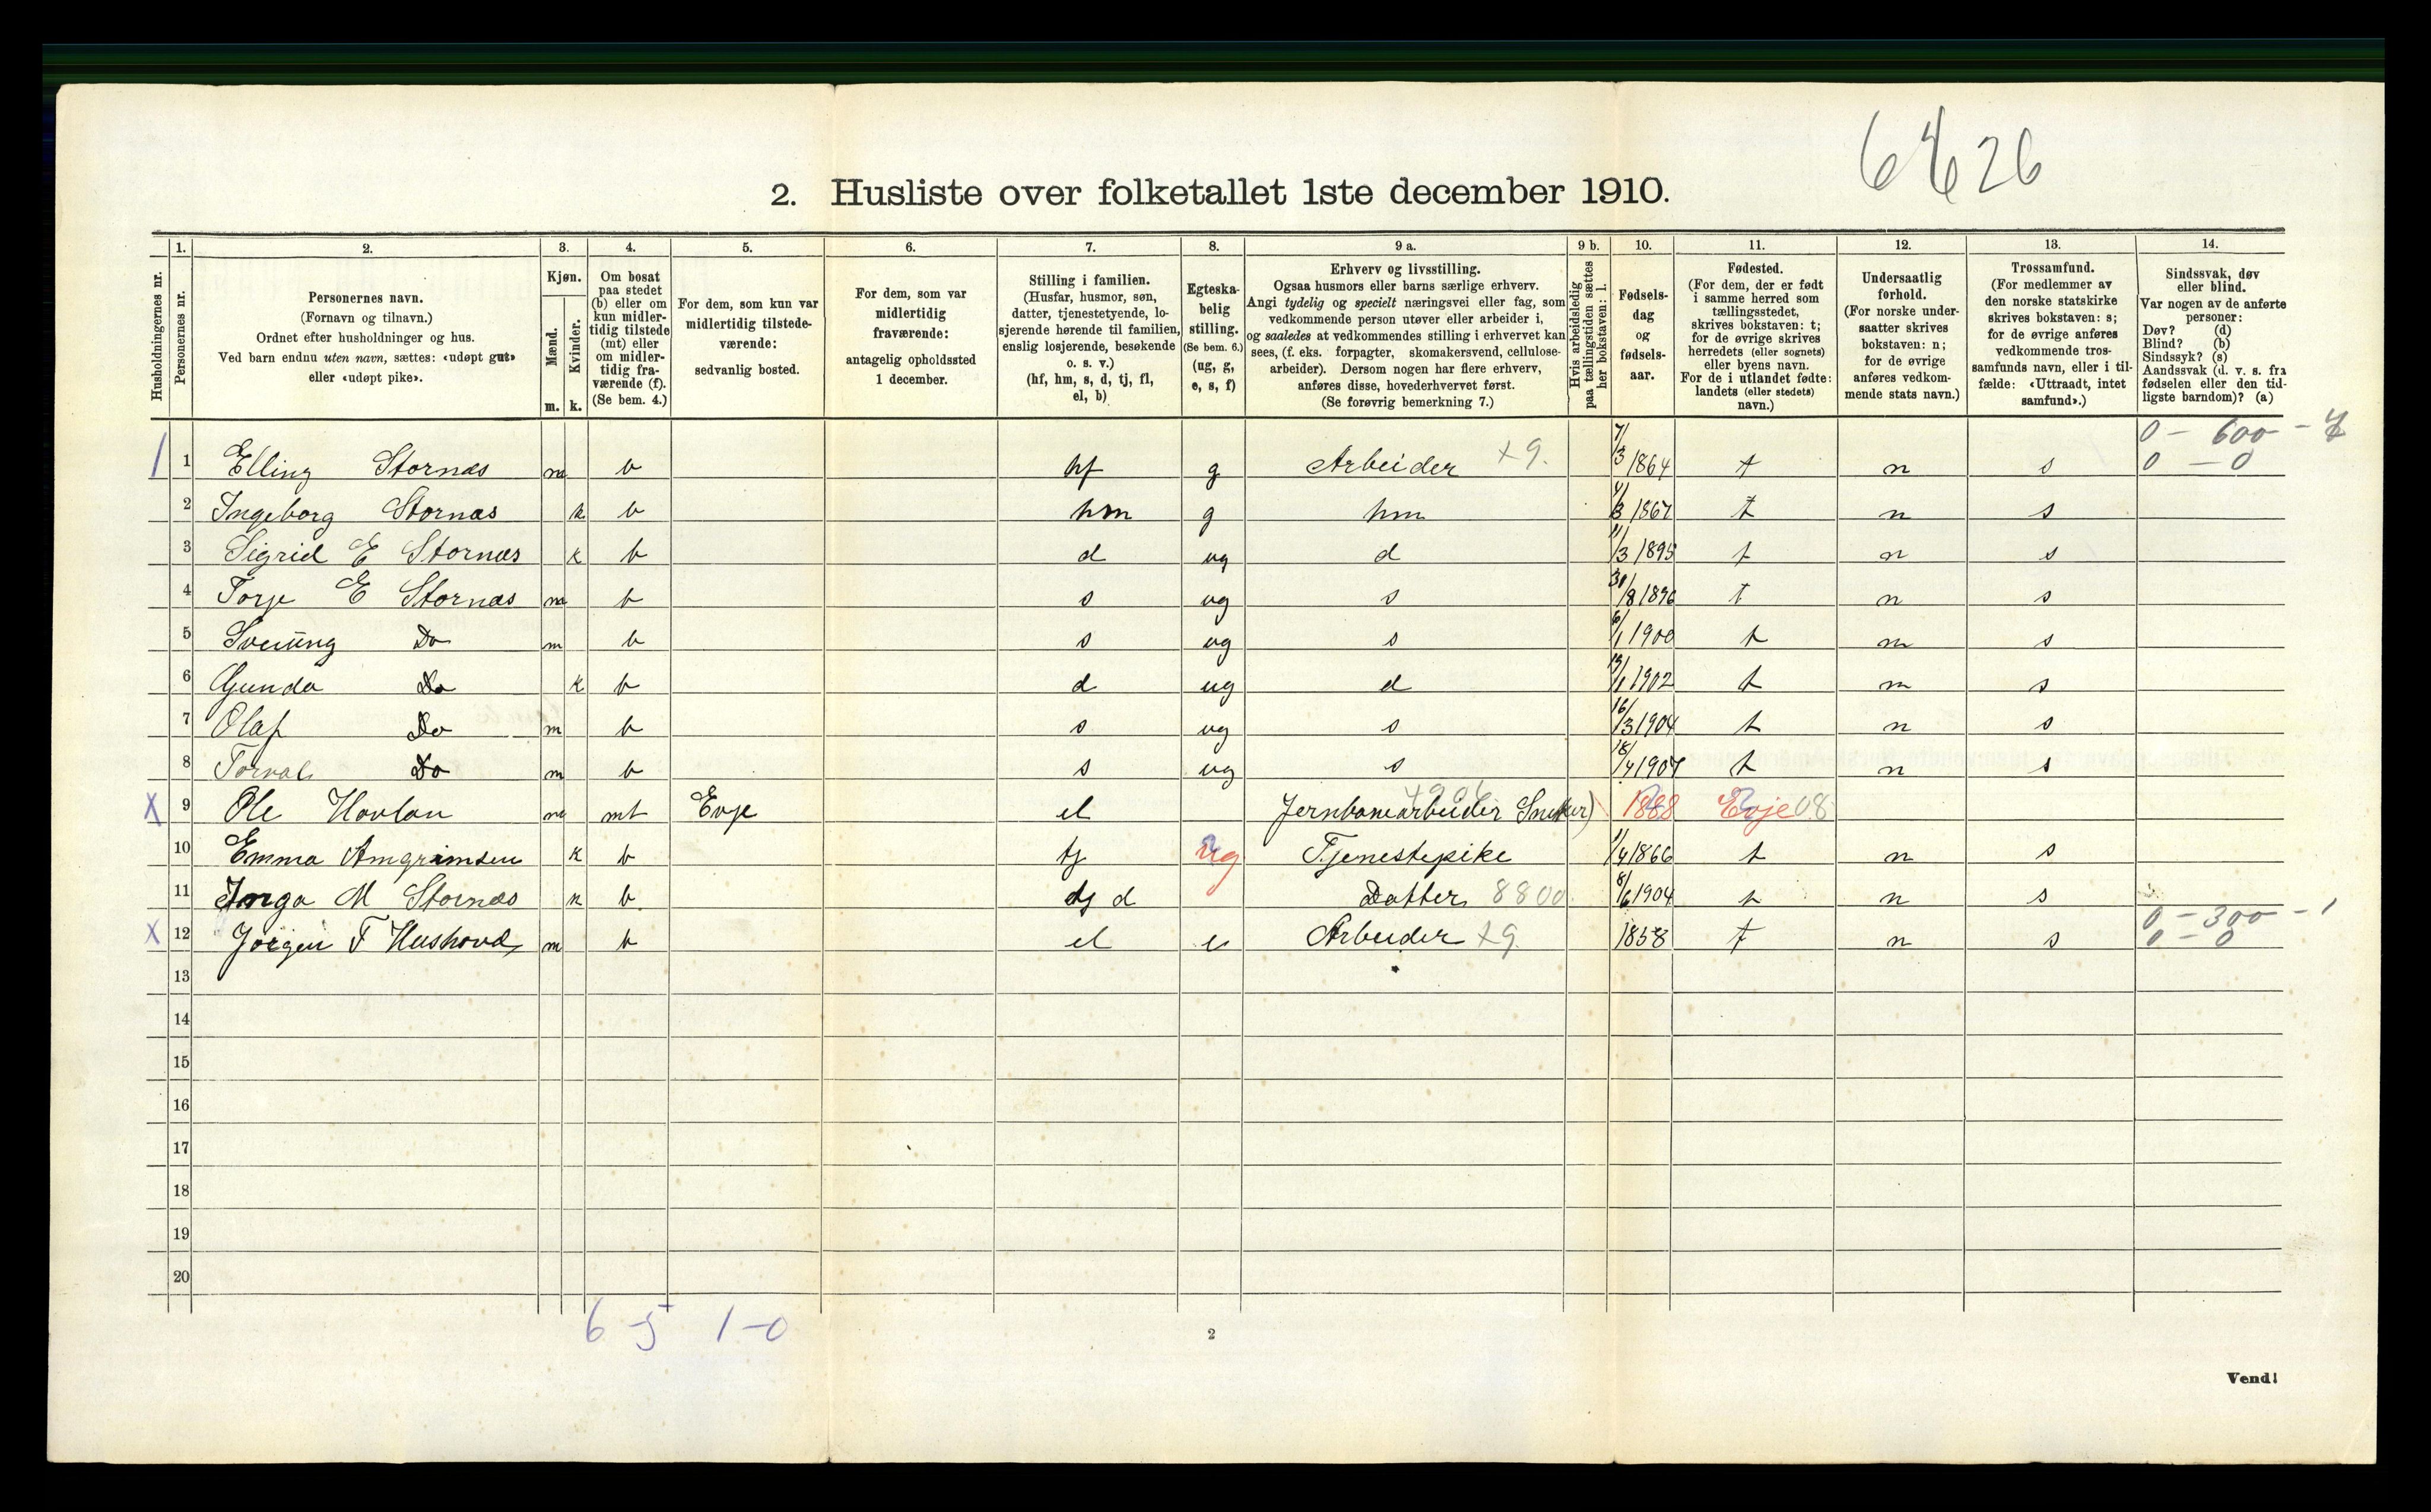 6626
2. Husliste over folketallet 1ste december 1910.
Husholdningernes nr.
1. Personernes nr.
2. Personernes navn. (Fornavn og tilnavn.) Ordnet efter husholdninger og hus. Ved barn endnu uten navn, sættes: «udøpt gut» eller «udøpt pike».
3. Kjøn. Mænd. m. Kvinder. k.
4. Om bosat paa stedet (b) eller om kun midlertidig tilstede (mt) eller om midlertidig fraværende (f). (Se bem. 4.)
5. For dem, som kun var midlertidig tilstedeværende: sedvanlig bosted.
6. For dem, som var midlertidig fraværende: antagelig opholdssted 1 december.
7. Stilling i familien. (Husfar, husmor, søn, datter, tjenestetyende, losjerende hørende til familien, enslig losjerende, besøkende o. s. v.) (hf, hm, s, d, tj, fl, el, b)
8. Egteskabelig stilling. (Se bem. 6.) (ug, g, e, s, f)
9 a. Erhverv og livsstilling. Ogsaa husmors eller barns særlige erhverv. Angi tydelig og specielt næringsvei eller fag, som vedkommende person utøver eller arbeider i, og saaledes at vedkommendes stilling i erhvervet kan sees, (f. eks. forpagter, skomakersvend, cellulosearbeider). Dersom nogen har flere erhverv, anføres disse, hovederhvervet først. (Se forøvrig bemerkning 7.)
9 b. Hvis arbeidsledig paa tællingstiden sættes her bokstaven: l.
10. Fødselsdag og fødselsaar.
11. Fødested. (For dem, der er født i samme herred som tællingsstedet, skrives bokstaven: t; for de øvrige skrives herredets (eller sognets) eller byens navn. For de i utlandet fødte: landets (eller stedets) navn.)
12. Undersaatlig forhold. (For norske undersaatter skrives bokstaven: n; for de øvrige anføres vedkommende stats navn.)
13. Trossamfund. (For medlemmer av den norske statskirke skrives bokstaven: s; for de øvrige anføres vedkommende trossamfunds navn, eller i tilfælde: «Uttraadt, intet samfund».)
14. Sindssvak, døv eller blind. Var nogen av de anførte personer: Døv? (d) Blind? (b) Sindssyk? (s) Aandssvak (d. v. s. fra fødselen eller den tidligste barndom)? (a)
0 - 600 -
1 1 Elling Stornæs m b hf g Arbeider x9. 7/3 1864 t n s 0 - 0
2 Ingeborg Stornæs k b hm g hm 4/3 1867 t n s
3 Sigrid E Stornæs k b d ug d 11/3 1895 t n s
4 Torje E Stornæs m b s ug s 30/8 1896 t n s
5 Sveiung Do m b s ug s 6/1 1900 t n s
6 Gunda Do k b d ug d 19/1 1902 t n s
7 Olaf Do m b s ug s 16/3 1904 t n s
8 Torval Do m b s ug s 18/4 1907 t n s
X 9 Ole Hovlan m mt Evje el Jernbanearbeider Snekker) 1888 Evje 08
10 Emma Arngrimsen k b tj ug Tjenestepike 11/4 1866 t n s
11 Inga M Stornæs k b d Datter 8800 8/6 1904 t n s
0 - 300 - 1
X 12 Jørgen T Hushovd m b el e Arbeider x9. 1858 t n s 0 - 0
13
14
15
16
17
18
19
20
6 - 5 1 - 0
2
Vend!